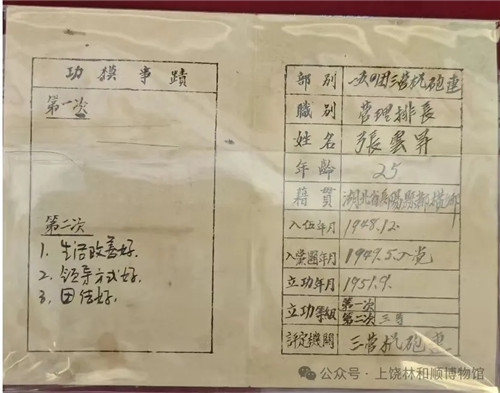 功模事蹟
第一次
第二次
1. 生活改善好.
2. 领导方式好.
3. 团结好.
部别 团三营机砲連
職别 管理排長
姓名 張雲昇
年齡 25
籍貫 湖北省 陽縣
入伍年月 1948.12.
入黨團年月 1949.5入党
立功年月 1951.9.
立功等級 第一次
第二次 三等
評定機關 三营机砲連
公众号·上饶林和顺博物馆